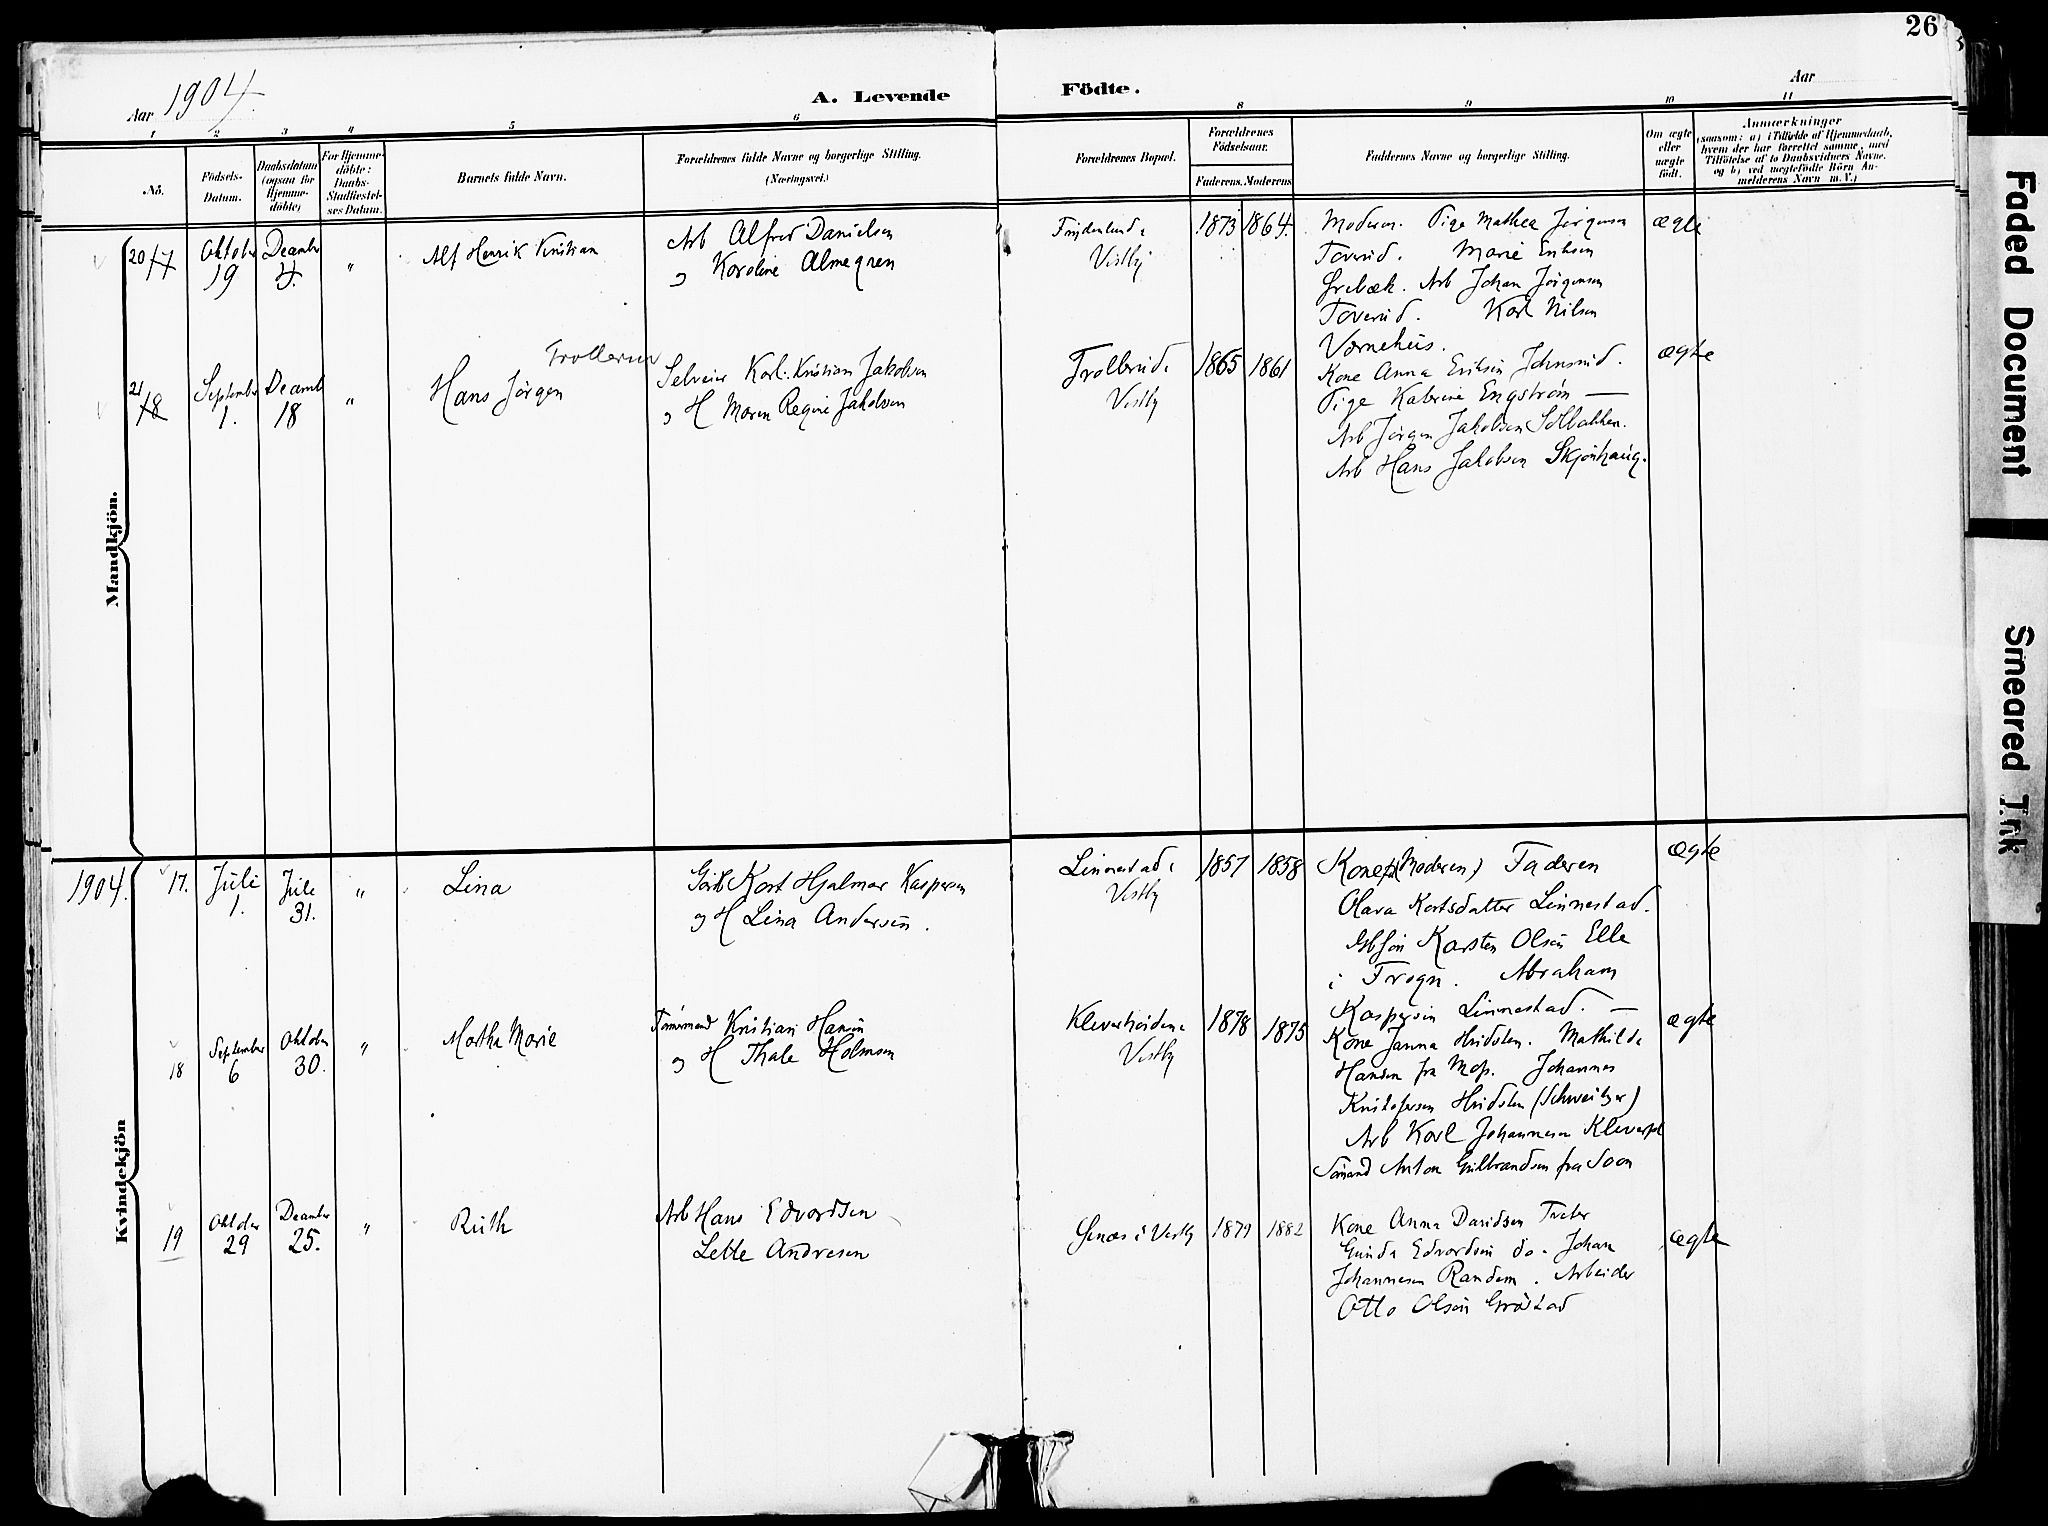 26
Aar 1904.
A. Levende Födte.
Aar
1 2 3 4 5 6 8 9 10 11
No.
Födsels-
Datum.
Daabsdatum
(ogsaa for
Hjemme-
döbte)
For Hjemme-
döbte:
Daabs-
Stadfæstel-
ses Datum.
Barnets fulde Navn.
Forældrenes fulde Navne og borgerlige Stilling.
(Næringsvei.)
Forældrenes Bopæl.
Forældrenes
Födselsaar.
Faderens. Moderens
Faddernes Navne og borgerlige Stilling.
Om ægte
eller
uægte
födt.
Anmærkninger
(saasom: a) i Tilfælde af Hjemmedaab,
hvem der har forrettet samme, med
Tilföielse af to Daabsvidners Navne.
og b) ved uægtefödte Börn An-
melderens Navn m. V.)
Mandkjön.
20 17
Oktober
19
December
4.
"
Alf Henrik Kristian
Arb Alfred Danielsen
og Karoline Almegren
Vestby
1873 1864.
Moderen. Pige Mathea Jørgensen
Taverud. Marie Eriksen
Grebæk. Arb Johan Jørgensen
Taverud. Karl Nilsen
Værnehus.
ægte
21 18
September
1.
Decemb
18
"
Hans Jørgen
Trollerud
Selveier Karl Kristian Jakobsen
og H Maren Regine Jakobsen
Trollerud i
Vestby
1865 1861
Kone Anna Eriksen Johnsrud.
Pige Katrine Engstrøm —
Arb Jørgen Jakobsen Solbakken.
Arb Hans Jakobsen Skjønhaug.
ægte
Kvindekjön
1904.
17.
Juli
1.
Juli
31.
"
Lina
Kort Hjalmar Kaspersen
og H Lina Andersen.
Linnestad i
Vestby
1857 1858
Kone (Moderen) Faderen
Olava Kortsdatter Linnestad.
Karsten Olsen Elle
i Frogn. Abraham
Kaspersen Linnestad. —
ægte
18
September
6
Oktober
30.
"
Martha Marie
Tømmermand Kristian Hansen
og H Thale Holmsen
Kleverheiden i
Vestby
1878 1875
Kone Janna Hvidsten. Mathilde
Hansen fra Mos. Johannes
Kristofersen Hvidsten (Schweitzer)
Arb Karl Johannesen
Sømand Anton Gulbrandsen fra Soon
ægte
19
Oktober
29
December
25.
"
Ruth
Arb Hans Edvardsen
Lette Andresen
i Vestby
1879 1882
Kone Anna Davidsen Tveter
Gunda Edvardsen do. Johan
Johannesen Randem. Arbeider
Otto Olsen
ægte
Faded Document
Smeared Ink